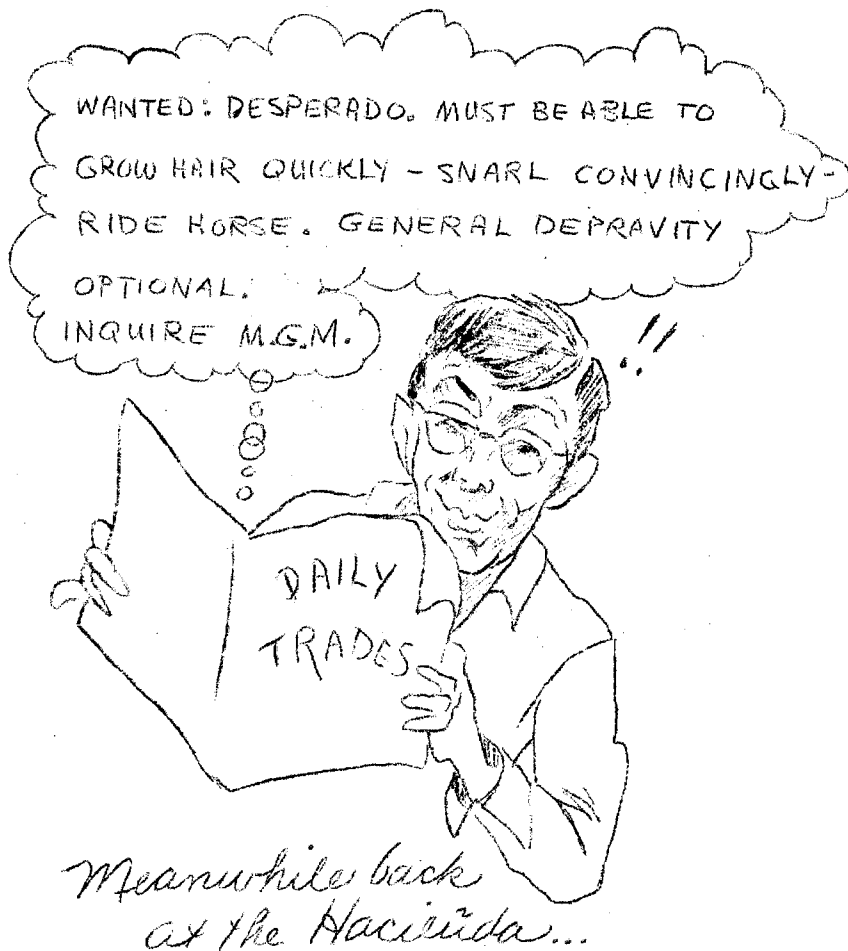 WANTED: DESPERADO. MUST BE ABLE TO
GROW HAIR QUICKLY - SNARL CONVINCINGLY -
RIDE HORSE. GENERAL DEPRAVITY
OPTIONAL.
INQUIRE M.G.M.
!!
DAILY
TRADES
Meanwhile back
at the Hacieñda...